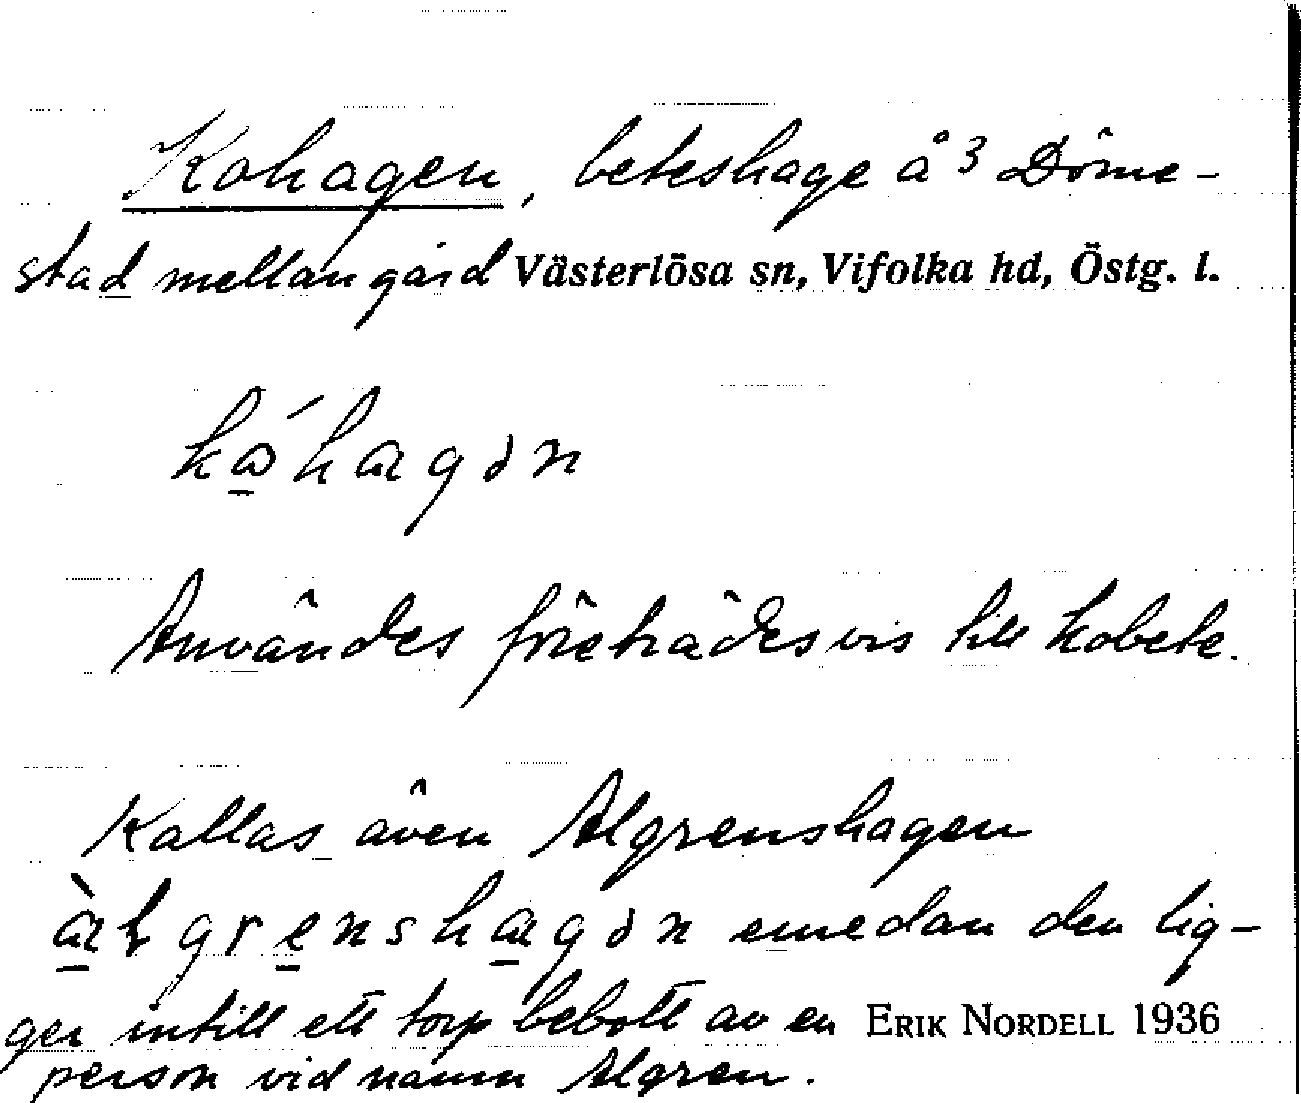 Kohagen, beteshage å 3 Döme-
stad mellangård Västerlösa sn, Vifolka hd, Östg. l.
kǿhagən
Användes företrädesvis till kobete.
Kallas även Algrenshagen
àlgrenshagən emedan den lig-
ger intill ett torp bebott av en ERIK NORDELL 1936
person vid namn Algren.